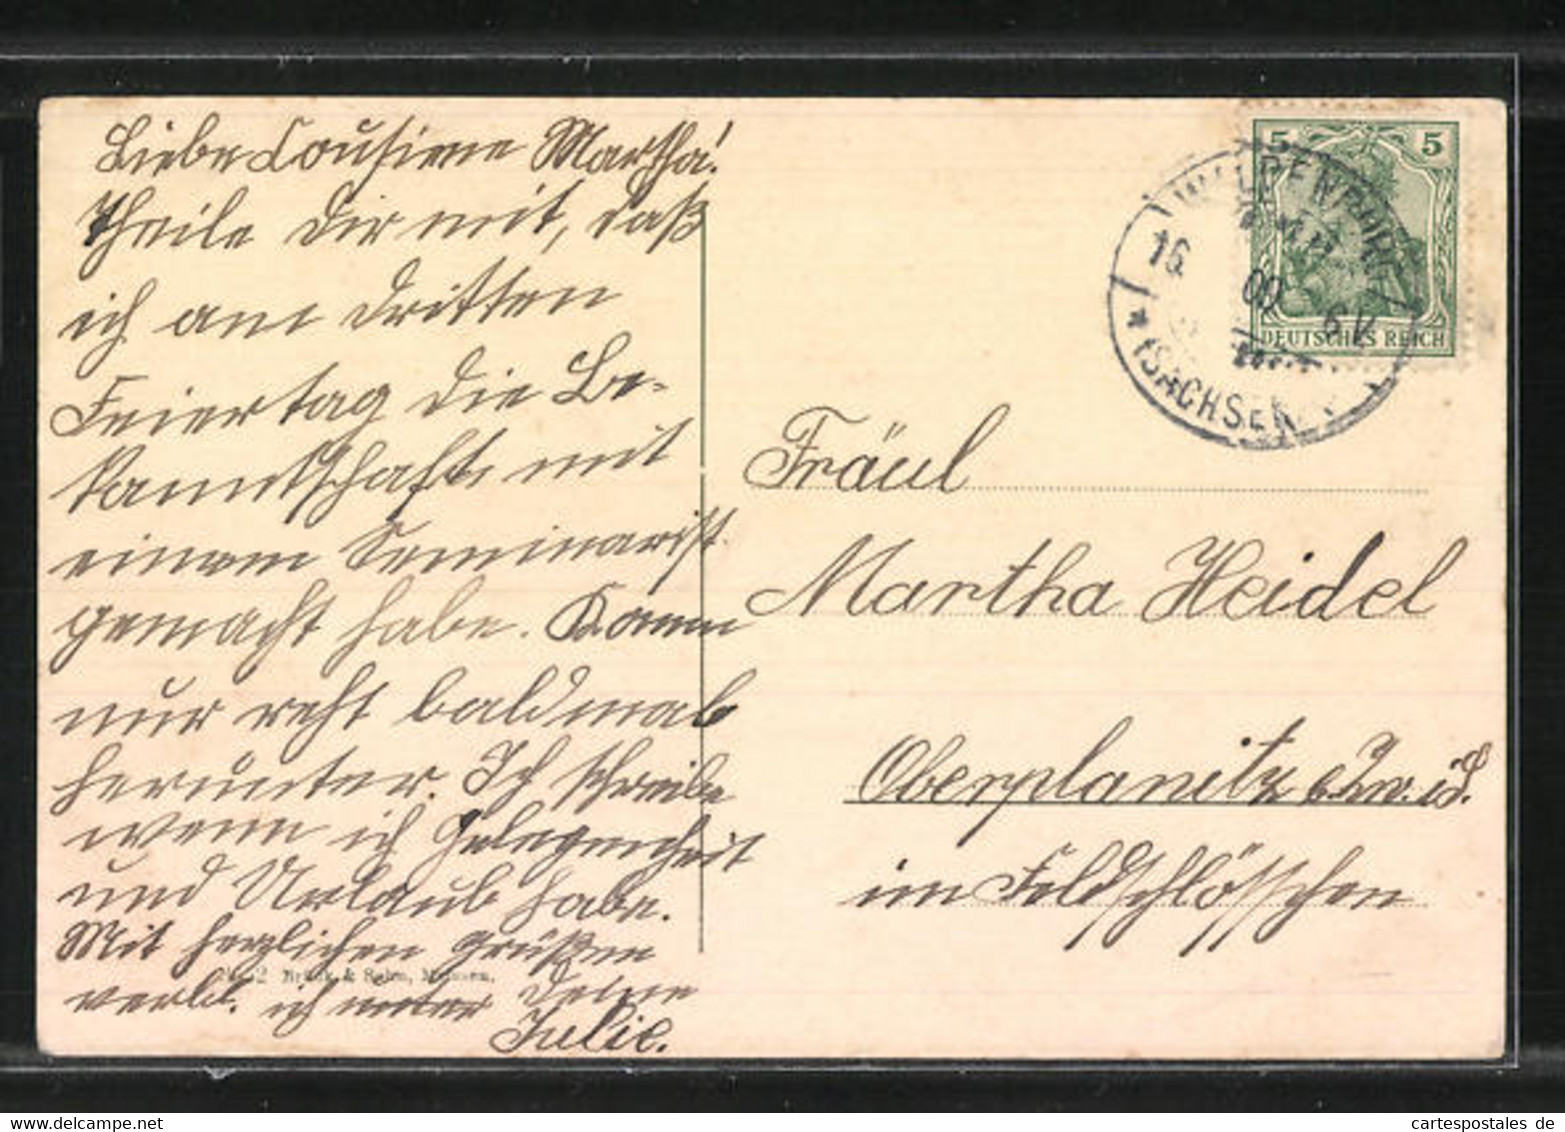 Liebe Cousiene Martha!
Theile dir mit, daß
ich am dritten
Feiertag die Be-
kanntschaft mit
einem Seminarist
gemacht habe. Komm
nur recht bald mal
herunter. Ich schreibe
wenn ich Gelegenheit
und Urlaub habe.
Mit herzlichen Grüßen
verbl. ich Deine
Julie.
Brück & Sohn, Meissen.
5 5
DEUTSCHES REICH
WALDENBURG
16. 09 6 V
* (SACHSEN)
Fräul
Martha Heidel
Oberplanitz b. Zw. i. S.
im Feldschlösschen
cartespostales de